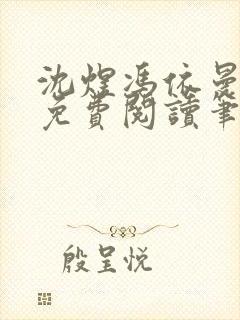 沈煜馮依曼
免費閱讀筆
殷呈悦